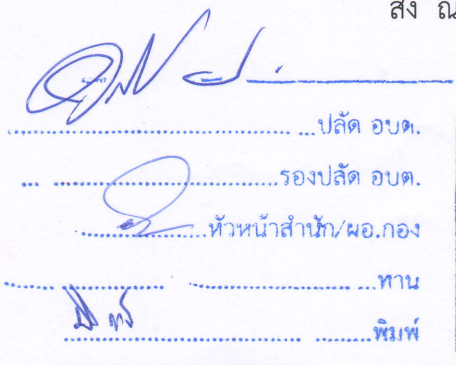 สั่ง ณ
ปลัด อบต.
รองปลัด อบต.
หัวหน้าสำนัก/ผอ.กอง
ทาน
พิมพ์